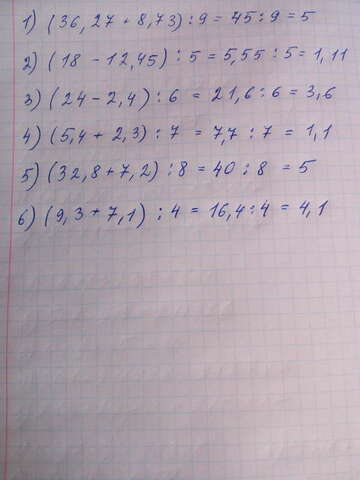 1) (36,27 + 8,73) : 9 = 45 : 9 = 5
2) (18 - 12,45) : 5 = 5,55 : 5 = 1,11
3) (24 - 2,4) : 6 = 21,6 : 6 = 3,6
4) (5,4 + 2,3) : 7 = 7,7 : 7 = 1,1
5) (32,8 + 7,2) : 8 = 40 : 8 = 5
6) (9,3 + 7,1) : 4 = 16,4 : 4 = 4,1